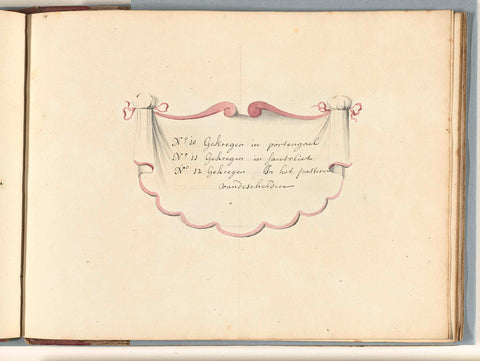 No 10 Gekregen in portengael
No 11 Gekregen in santvliet
No 12 Gekregen In het
vandeschelden